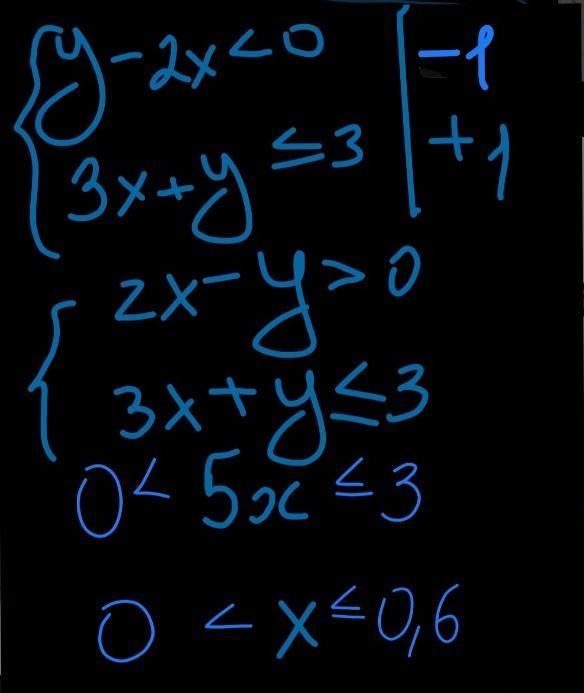 y-2x<0 | -1
3x+y≤3 | +1
2x-y>0
3x+y≤3
0<5x≤3
0<x≤0,6